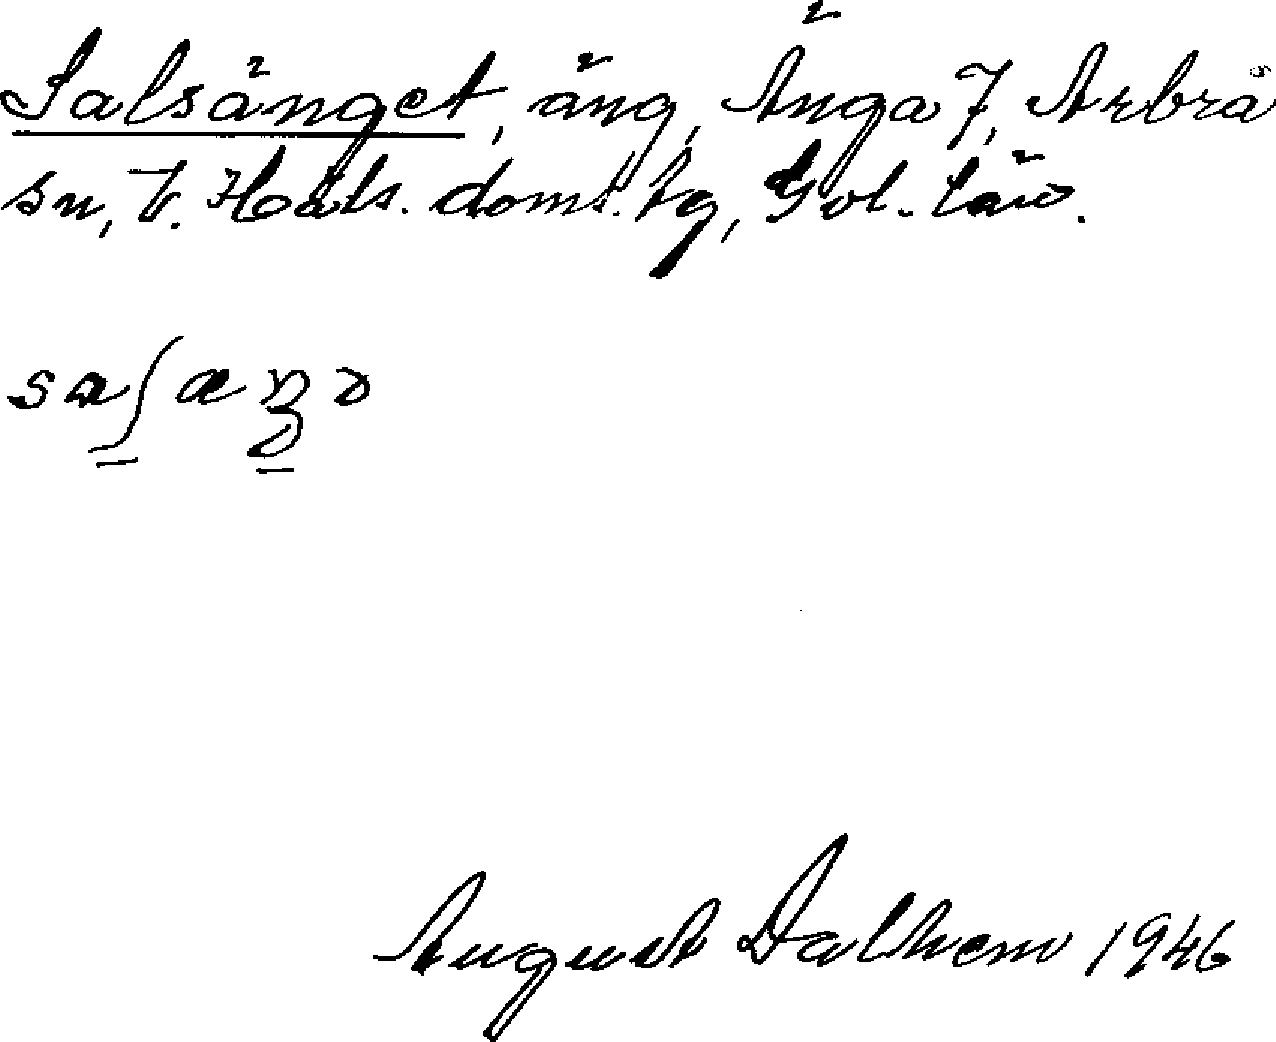 Salsänget, äng, Änga 7, Arbrå
sn, V. Häls. doms. tg, Gvl. län.
saʃæŋə
August Dalhem 1946